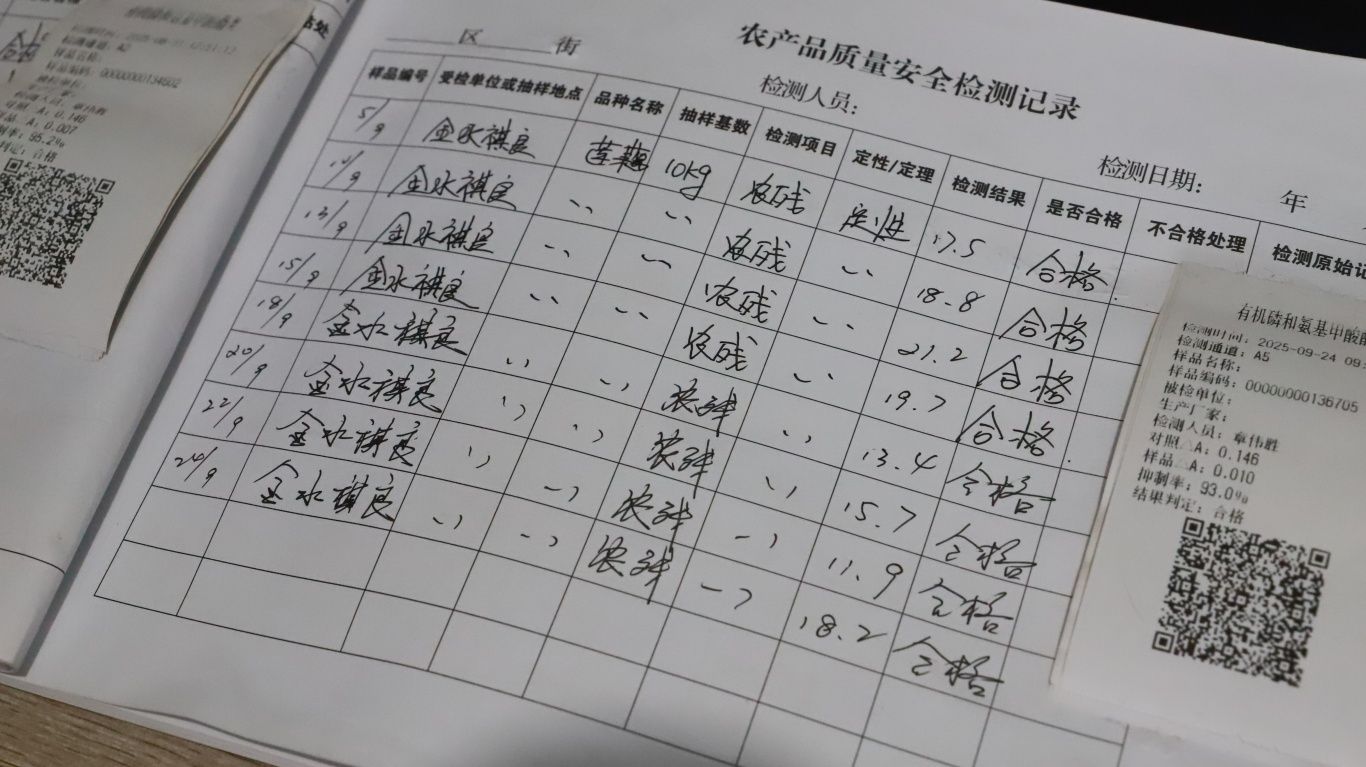 农产品质量安全检测记录
区 街
检测人员:
检测日期: 年
样品编号 受检单位或抽样地点 品种名称 抽样基数 检测项目 定性/定理 检测结果 是否合格 不合格处理 检测原始记
5/9 金水祺良 莲藕 10kg 农残 定性 17.5 合格
金水祺良 〃 〃 农残 〃 18.8 合格
13/9 金水祺良 〃 〃 农残 〃 21.2 合格
15/9 金水祺良 〃 〃 农残 〃 19.7 合格
18/9 金水祺良 〃 〃 农残 〃 13.4 合格
20/9 金水祺良 〃 〃 农残 〃 15.7 合格
22/9 金水祺良 〃 〃 农残 〃 11.9 合格
24/9 金水祺良 〃 〃 农残 〃 18.2 合格
检测通道: A2
样品名称:
样品编码: 00000000134602
被检单位:
A: 0.146
A: 0.007
合格
有机磷和氨基甲酸酯
检测时间: 2025-09-24 09:
检测通道: A5
样品名称:
样品编码: 00000000136705
被检单位:
生产厂家:
检测人员: 章伟胜
对照△A: 0.146
样品△A: 0.010
抑制率: 93.0%
结果判定: 合格